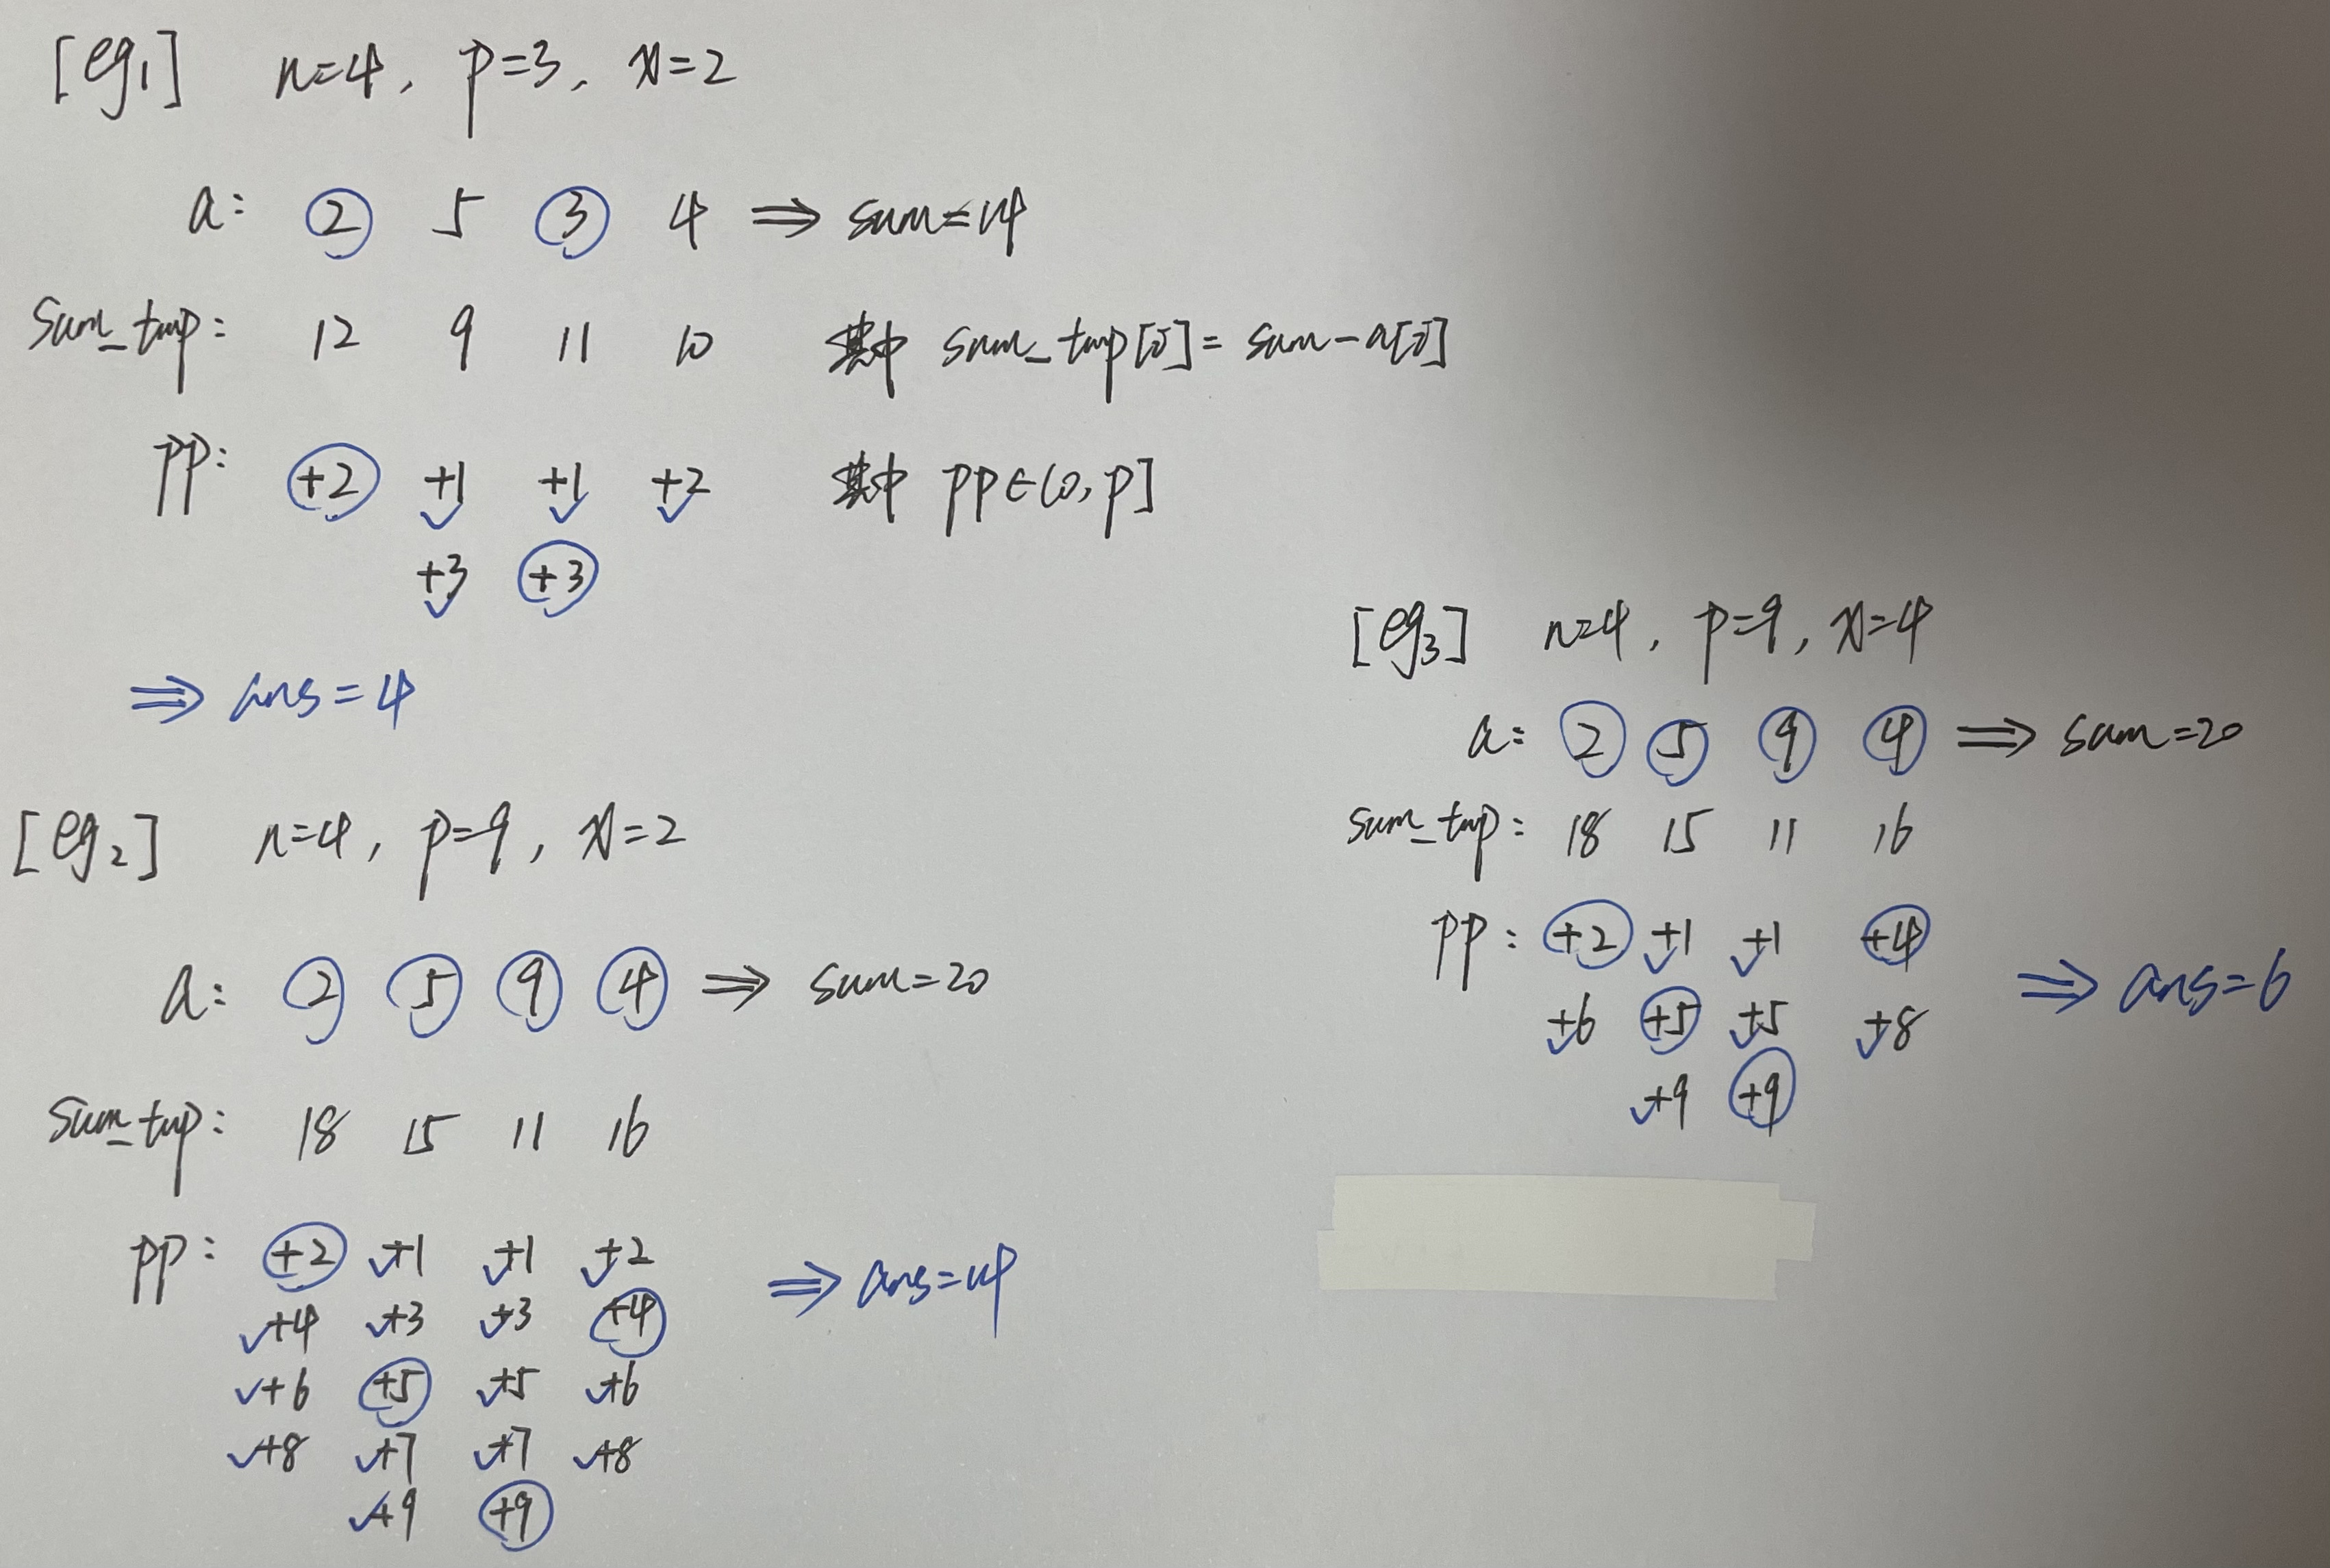 [eg1] n=4, p=3, x=2
a: 2 5 3 4 ⇒ sum=14
sum_tmp: 12 9 11 10 其中 sum_tmp[i]=sum-a[i]
pp: +2 +1 +1 +2 其中 pp∈(0,p]
+3 +3
⇒ ans=4
[eg2] n=4, p=9, x=2
a: 2 5 9 4 ⇒ sum=20
sum_tmp: 18 15 11 16
pp: +2 +1 +1 +2 ⇒ ans=14
+4 +3 +3 +4
+6 +5 +5 +6
+8 +7 +7 +8
+9 +9
[eg3] n=4, p=9, x=4
a: 2 5 9 4 ⇒ sum=20
sum_tmp: 18 15 11 16
pp: +2 +1 +1 +4
⇒ ans=6
+6 +5 +5 +8
+9 +9